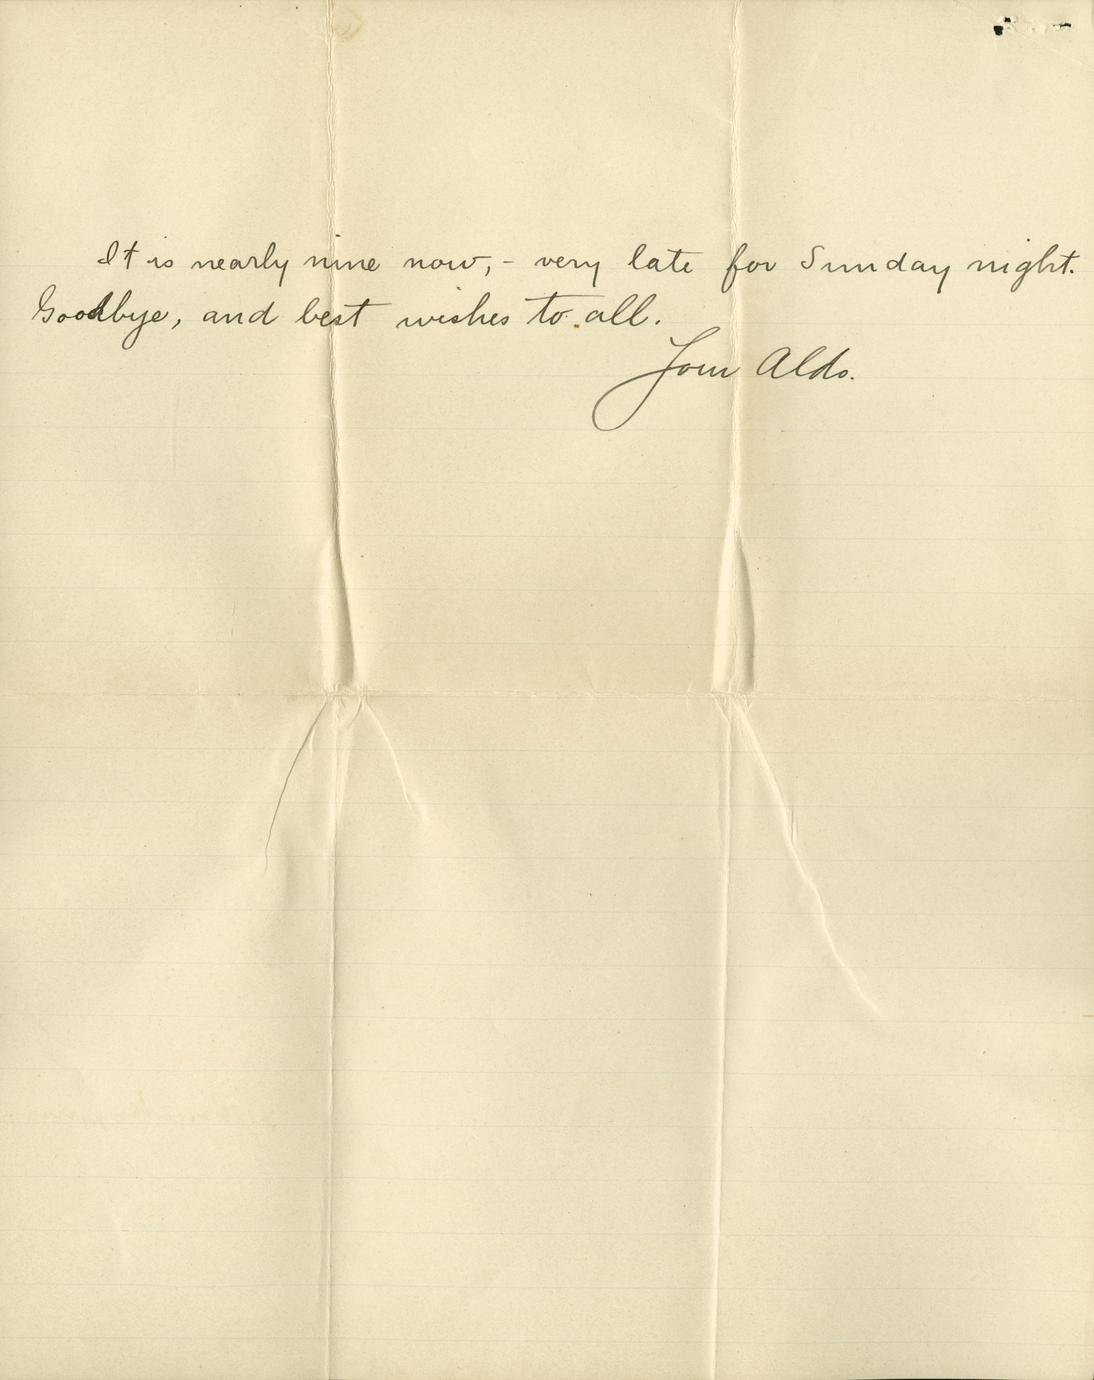 It is nearly nine now, - very late for Sunday night.
Goodbye, and best wishes to all.
Your Aldo.